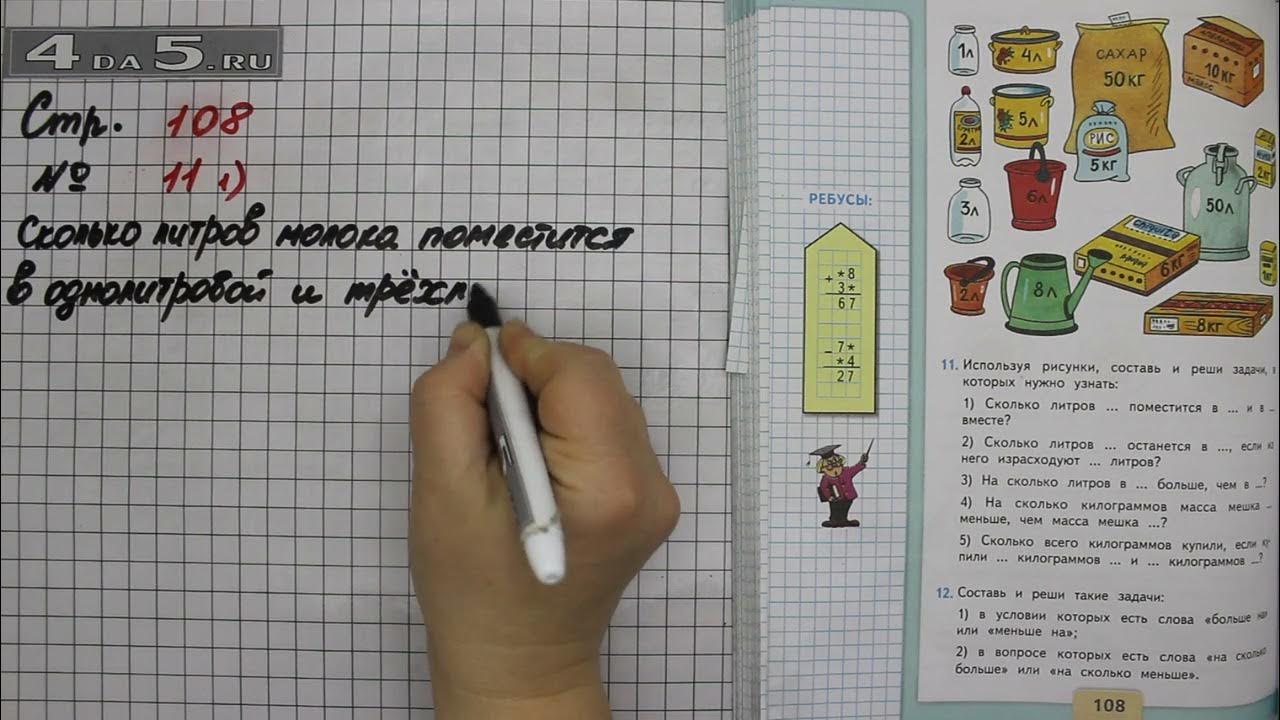 4 DA 5.RU
Стр. 108
№ 11 1)
Сколько литров молока поместится
в однолитровой и трёхл
РЕБУСЫ:
*8
+
3*
67
7*
–
*4
27
1л
4л
САХАР
50 КГ
АПЕЛЬСИНЫ
10 КГ
2л
5л
РИС
5 КГ
2 КГ
3л
6л
50л
2л
8л
6 КГ
8 КГ
11. Используя рисунки, составь и реши задачи, в
которых нужно узнать:
1) Сколько литров ... поместится в ... и в ...
вместе?
2) Сколько литров ... останется в ..., если из
него израсходуют ... литров?
3) На сколько литров в ... больше, чем в ...?
4) На сколько килограммов масса мешка ...
меньше, чем масса мешка ...?
5) Сколько всего килограммов купили, если ку
пили ... килограммов ... и ... килограммов ...?
12. Составь и реши такие задачи:
1) в условии которых есть слова «больше на»
или «меньше на»;
2) в вопросе которых есть слова «на сколько
больше» или «на сколько меньше».
108